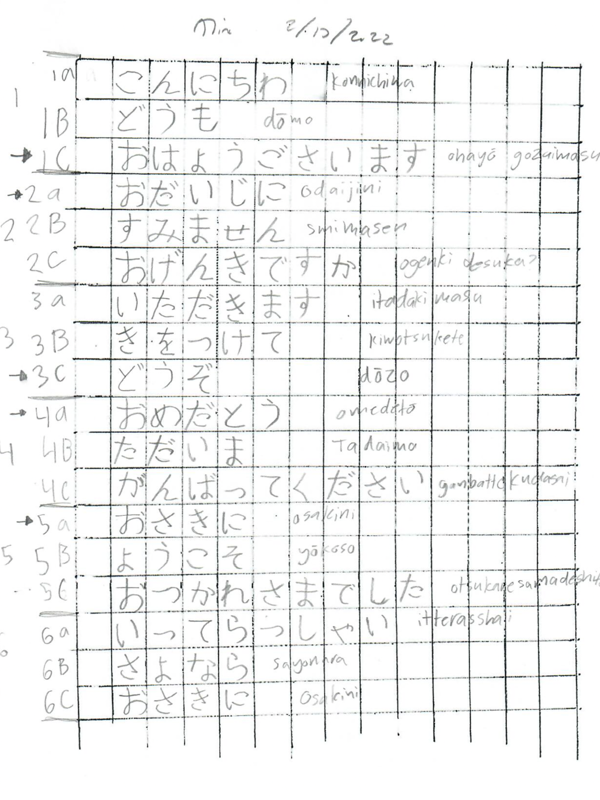 2/17/2022
1a こんにちわ konnichiwa
1 1B どうも dōmo
→1C おはようございます ohayō gozaimasu
→2a おだいじに odaijini
2 2B すみません smimasen
2C おげんきですか ogenki desuka?
3a いただきます itadakimasu
3 3B きをつけて kiwotsukete
→3C どうぞ dōzo
→4a おめだとう omedetō
4 4B ただいま Tadaima
4C がんばってください ganbattekudasai
→5a おさきに osakini
5 5B ようこそ yōkoso
5C おつかれさまでした
6a いってらっしゃい itterasshai
6B さよなら sayonara
6C おさきに Osakini